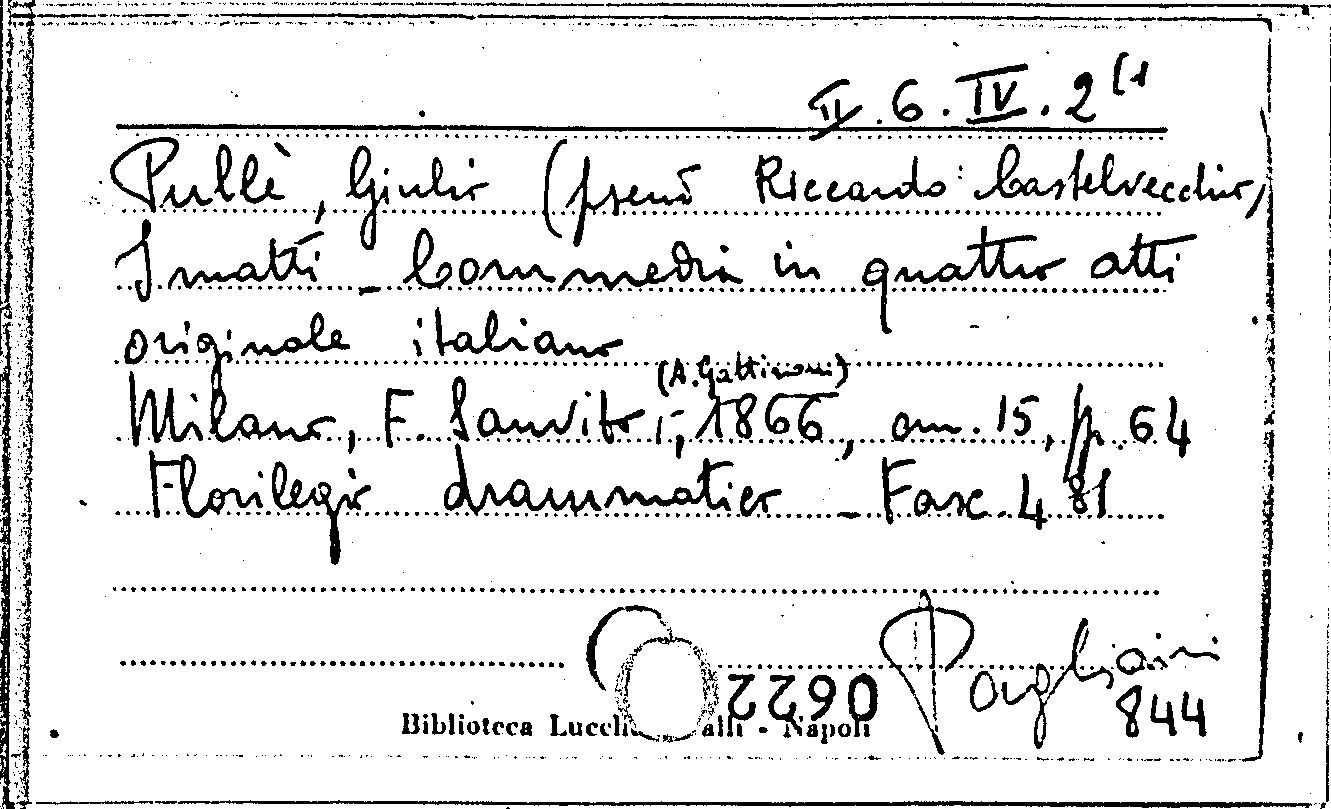 II.6.IV.2(1
Pullè, Giulio (pseud Riccardo Castelvecchio)
I matti - Commedia in quattro atti
originale italiano
(A. Gattinoni)
Milano, F. Sanvito, 1866, cm. 15, pp. 64
Florilegio drammatico - Fasc. 481
Pagliaini
844
0622
Biblioteca Lucchesi Palli - Napoli